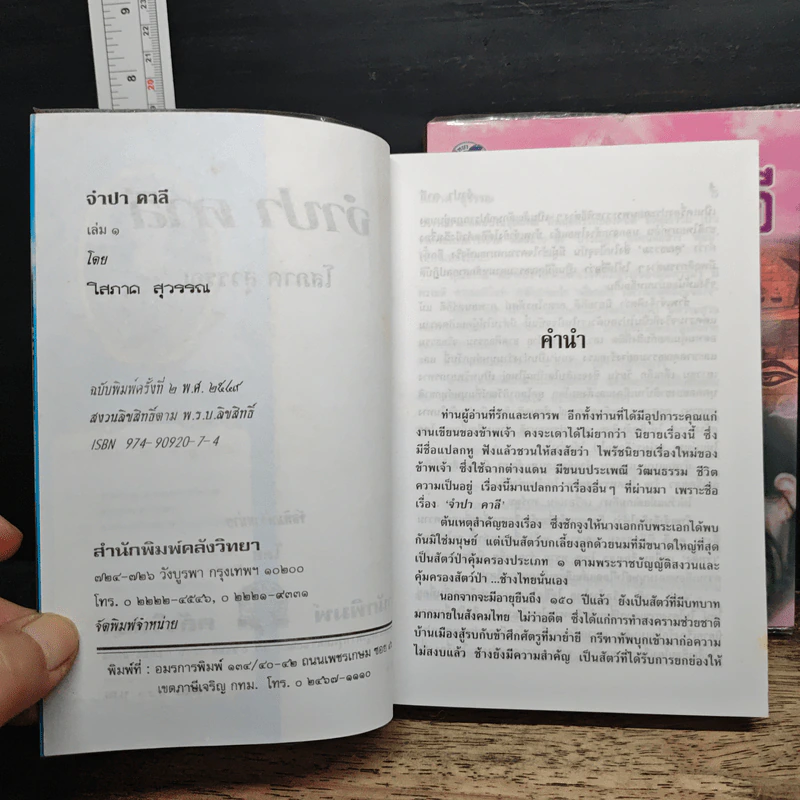 จำปา คาลี
เล่ม ๑
โดย
โสภาค สุวรรณ
ฉบับพิมพ์ครั้งที่ ๒ พ.ศ. ๒๕๔๙
สงวนลิขสิทธิ์ตาม พ.ร.บ.ลิขสิทธิ์
ISBN 974-90920-7-4
สำนักพิมพ์คลังวิทยา
๗๒๔-๗๒๖ วังบูรพา กรุงเทพฯ ๑๐๒๐๐
โทร. ๐ ๒๒๒๒-๔๕๔๖, ๐ ๒๒๒๑-๙๓๓๑
จัดพิมพ์จำหน่าย
พิมพ์ที่ : อมรการพิมพ์ ๑๓๔/๔๐-๔๒ ถนนเพชรเกษม ซอย
เขตภาษีเจริญ กทม. โทร. ๐ ๒๔๖๗-๑๑๑๐
คำนำ
ท่านผู้อ่านที่รักและเคารพ อีกทั้งท่านที่ได้มีอุปการะคุณแก่
งานเขียนของข้าพเจ้า คงจะเดาได้ไม่ยากว่า นิยายเรื่องนี้ ซึ่ง
มีชื่อแปลกหู ฟังแล้วชวนให้สงสัยว่า ไพรัชนิยายเรื่องใหม่ของ
ข้าพเจ้า ซึ่งใช้ฉากต่างแดน มีขนบประเพณี วัฒนธรรม ชีวิต
ความเป็นอยู่ เรื่องนี้มาแปลกกว่าเรื่องอื่นๆ ที่ผ่านมา เพราะชื่อ
เรื่อง 'จำปา คาลี'
ต้นเหตุสำคัญของเรื่อง ซึ่งชักจูงให้นางเอกกับพระเอกได้พบ
กันมิใช่มนุษย์ แต่เป็นสัตว์บกเลี้ยงลูกด้วยนมที่มีขนาดใหญ่ที่สุด
เป็นสัตว์ป่าคุ้มครองประเภท ๑ ตามพระราชบัญญัติสงวนและ
คุ้มครองสัตว์ป่า ...ช้างไทยนั่นเอง
นอกจากจะมีอายุยืนถึง ๑๕๐ ปีแล้ว ยังเป็นสัตว์ที่มีบทบาท
มากมายในสังคมไทย ไม่ว่าอดีต ซึ่งได้แก่การทำสงครามช่วยชาติ
บ้านเมืองสู้รบกับข้าศึกศัตรูที่มาย่ำยี กรีฑาทัพบุกเข้ามาก่อความ
ไม่สงบแล้ว ช้างยังมีความสำคัญ เป็นสัตว์ที่ได้รับการยกย่องให้